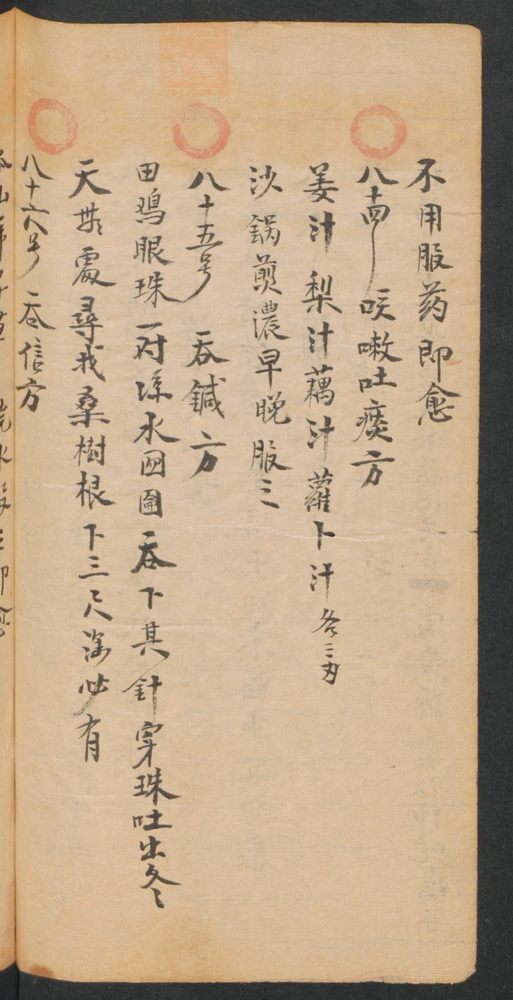 不用服药即愈
八十四号 咳嗽吐痰方
姜汁 梨汁 藕汁 蘿卜汁 各三刃
沙鍋煎濃早晚服之
八十五号 吞鍼方
田鳮眼珠一对涼水囫圇吞下其針穿珠吐出冬
天無處尋找桑樹根下三尺深必有
八十六号 吞信方